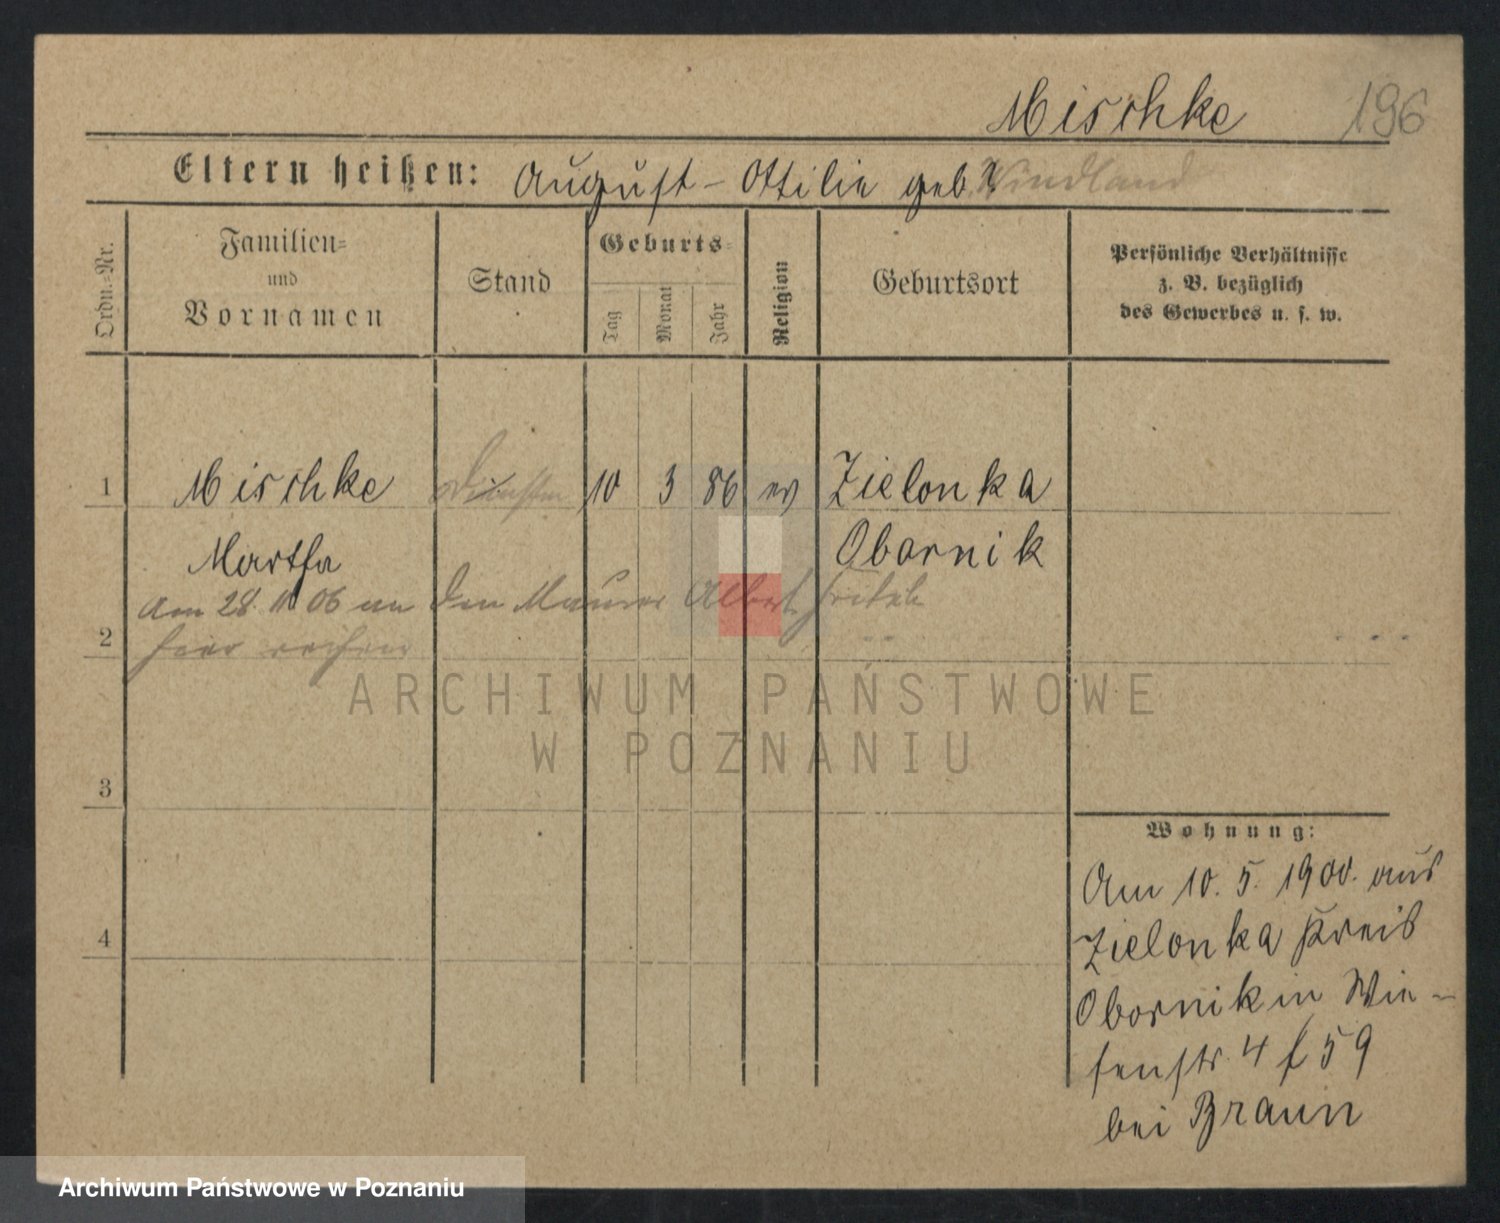 Mischke 196
Eltern heißen: August - Ottilie geb. Windland
Ordn.-Nr.
Familien-
und
Vornamen
Stand
Geburts-
Tag
Monat
Jahr
Religion
Geburtsort
Persönliche Verhältnisse
z. B. bezüglich
des Gewerbes u. s. w.
1 Mischke 10 3 86 ev Zielonka
Martha Obornik
Am 28. 11 06 an den Maurer Albert
2 hier
3
4
Wohnung:
Am 10. 5. 1900. aus
Zielonka Kreis
Obornik in Wie-
senstr. 4 f 59
bei Braun
ARCHIWUM PAŃSTWOWE
W POZNANIU
Archiwum Państwowe w Poznaniu